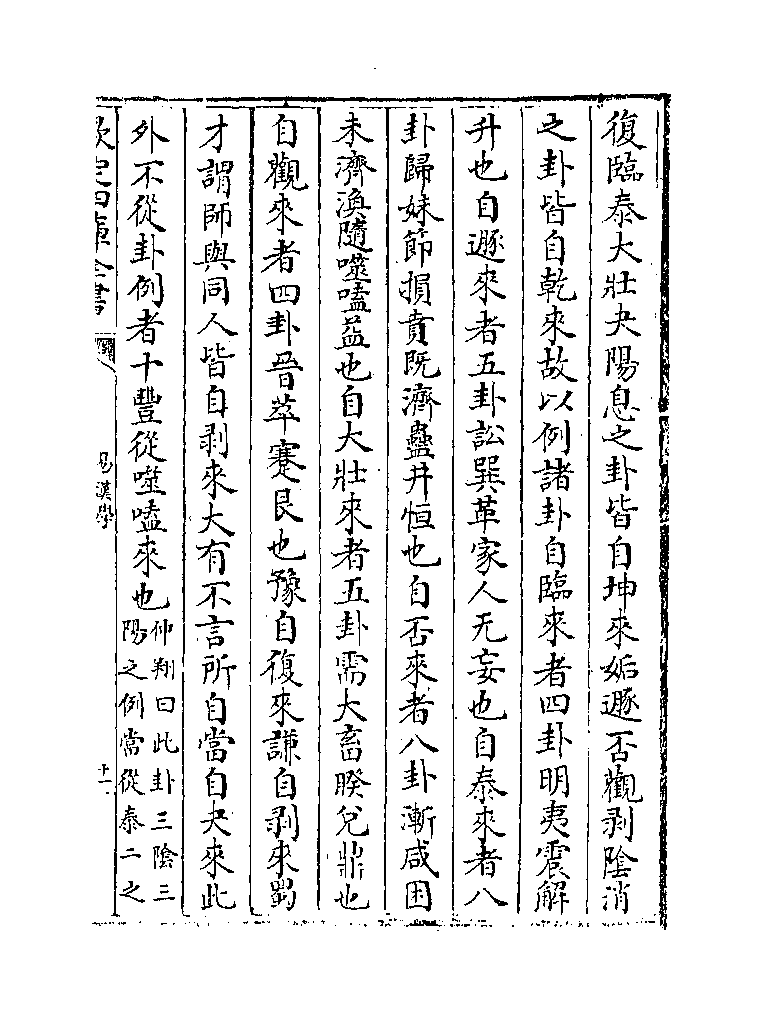 復臨泰大壯夬陽息之卦皆自坤來姤遯否觀剥陰消
之卦皆自乾來故以例諸卦自臨來者四卦明夷震解
升也自遯來者五卦訟巽革家人无妄也自泰來者八
卦歸妹節損賁既濟蠱井恒也自否來者八卦漸咸困
未濟渙隨噬嗑益也自大壯來者五卦需大畜睽兌鼎也
自觀來者四卦晉萃蹇艮也豫自復來謙自剥來蜀
才謂師與同人皆自剥來大有不言所自當自夬來此
外不從卦例者十豐從噬嗑來也仲翔曰此卦三陰三
陽之例當從泰二之
欽定四庫全書
易漢學
十一